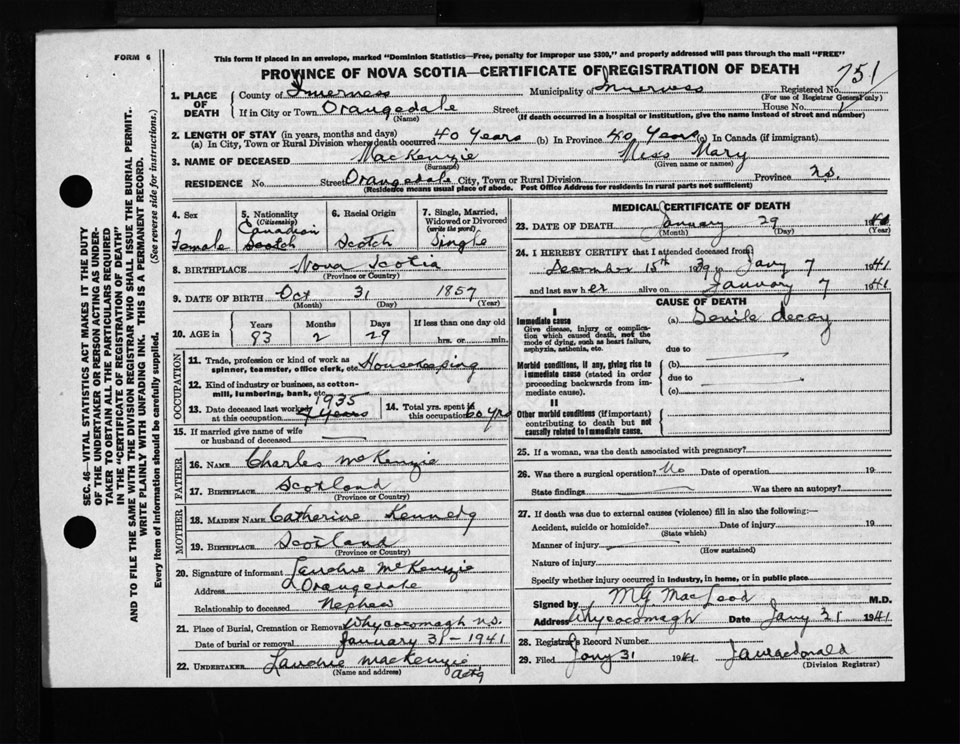 FORM 6
This form if placed in an envelope, marked "Dominion Statistics—Free, penalty for improper use $300," and properly addressed will pass through the mail "FREE"
PROVINCE OF NOVA SCOTIA—CERTIFICATE OF REGISTRATION OF DEATH
Registered No. 751
(For use of Registrar General only)
1. PLACE OF DEATH
County of Inverness Municipality of Inverness
If in City or Town Orangedale Street House No.
(Name) (If death occurred in a hospital or institution, give the name instead of street and number)
2. LENGTH OF STAY (in years, months and days)
(a) In City, Town or Rural Division where death occurred 40 Years (b) In Province 40 Years (c) In Canada (if immigrant)
3. NAME OF DECEASED MacKenzie Miss Mary
(Surname) (Given name or names)
RESIDENCE No. Street Orangedale City, Town or Rural Division Province N.S.
(Residence means usual place of abode. Post Office Address for residents in rural parts not sufficient)
4. Sex
Female
5. Nationality
(Citizenship)
Canadian
Scotch
6. Racial Origin
Scotch
7. Single, Married, Widowed or Divorced
(write the word)
Single
8. BIRTHPLACE Nova Scotia
(Province or Country)
9. DATE OF BIRTH Oct 31 1857
(Month) (Day) (Year)
10. AGE in
Years Months Days If less than one day old
83 2 29 hrs. or min.
OCCUPATION
11. Trade, profession or kind of work as spinner, teamster, office clerk, etc. Housekeeping
12. Kind of industry or business, as cotton-mill, lumbering, bank, etc.
13. Date deceased last worked at this occupation 1935
7 years
14. Total yrs. spent in this occupation 60 yrs
15. If married give name of wife or husband of deceased
FATHER
16. NAME Charles McKenzie
17. BIRTHPLACE Scotland
(Province or Country)
MOTHER
18. MAIDEN NAME Catherine Kennedy
19. BIRTHPLACE Scotland
(Province or Country)
20. Signature of informant Lauchie McKenzie
Address Orangedale
Relationship to deceased Nephew
21. Place of Burial, Cremation or Removal Whycocomagh N.S.
Date of burial or removal January 31 - 1941
22. UNDERTAKER Lauchie MacKenzie
(Name and address) actg
MEDICAL CERTIFICATE OF DEATH
23. DATE OF DEATH January 29 1941
(Month) (Day) (Year)
24. I HEREBY CERTIFY that I attended deceased from
December 15th 1939 to Jany 7 1941
and last saw her alive on January 7 1941
CAUSE OF DEATH
I
Immediate cause
Give disease, injury or complication which caused death, not the mode of dying, such as heart failure, asphyxia, asthenia, etc.
(a) Senile decay
due to
Morbid conditions, if any, giving rise to immediate cause (stated in order proceeding backwards from immediate cause).
(b)
due to
(c)
II
Other morbid conditions (if important) contributing to death but not causally related to immediate cause.
25. If a woman, was the death associated with pregnancy?
26. Was there a surgical operation? No Date of operation 19
State findings Was there an autopsy?
27. If death was due to external causes (violence) fill in also the following:—
Accident, suicide or homicide? Date of injury 19
(State which)
Manner of injury
(How sustained)
Nature of injury
Specify whether injury occurred in industry, in home, or in public place
Signed by M.G. MacLeod M.D.
Address Whycocomagh Date Jany 31 1941
28. Registrar's Record Number
29. Filed Jany 31 1941
(Division Registrar)
SEC. 46—VITAL STATISTICS ACT MAKES IT THE DUTY
OF THE UNDERTAKER OR PERSON ACTING AS UNDER-
TAKER TO OBTAIN ALL THE PARTICULARS REQUIRED
IN THE "CERTIFICATE OF REGISTRATION OF DEATH"
AND TO FILE THE SAME WITH THE DIVISION REGISTRAR WHO SHALL ISSUE THE BURIAL PERMIT.
WRITE PLAINLY WITH UNFADING INK. THIS IS A PERMANENT RECORD.
Every item of information should be carefully supplied. (See reverse side for instructions.)